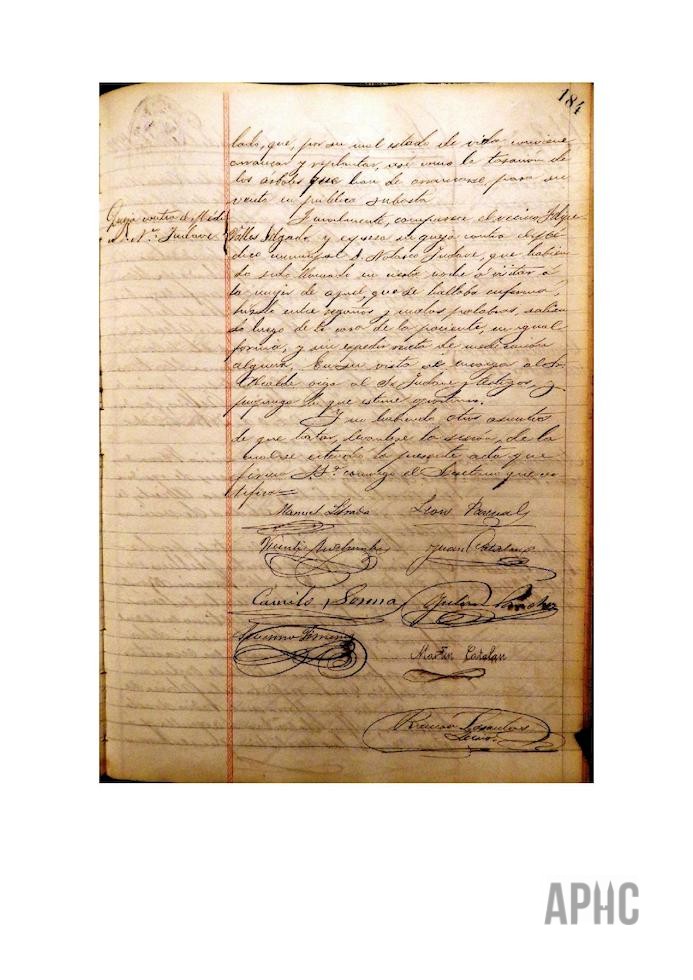 184
lado, que, por su mal estado de vida conviene
arrancar y replantar, así como la tasación de
los árboles que han de arrancarse, para su
venta en pública subasta.
Queja contra el Médi
Igualmente, comparece el vecino Felipe
Valles Delgado y expresa su queja contra el
dico municipal D. Nolasco Judave, que habien
do sido llamado en noche a visitar a
la mujer de aquel, que se hallaba enferma,
entre regaños y malas palabras, salien
do luego de la casa de la paciente, en igual
forma, y sin expedir receta de medicación
alguna. En su vista se encarga al Sr.
Alcalde oiga al Sr. Judave y testigos, y
proponga lo que estime oportuno.
Y no habiendo otros asuntos
de que tratar, levantose la sesión, de la
cual se extiende la presente acta que
firma S. Sª conmigo el Secretario que cer
tifico=
Manuel Labrada León Pascual
Vicente Juan Catalan
Camilo Serena Sanchez
Jimeno
Martin Catalan
Ramon
APHC